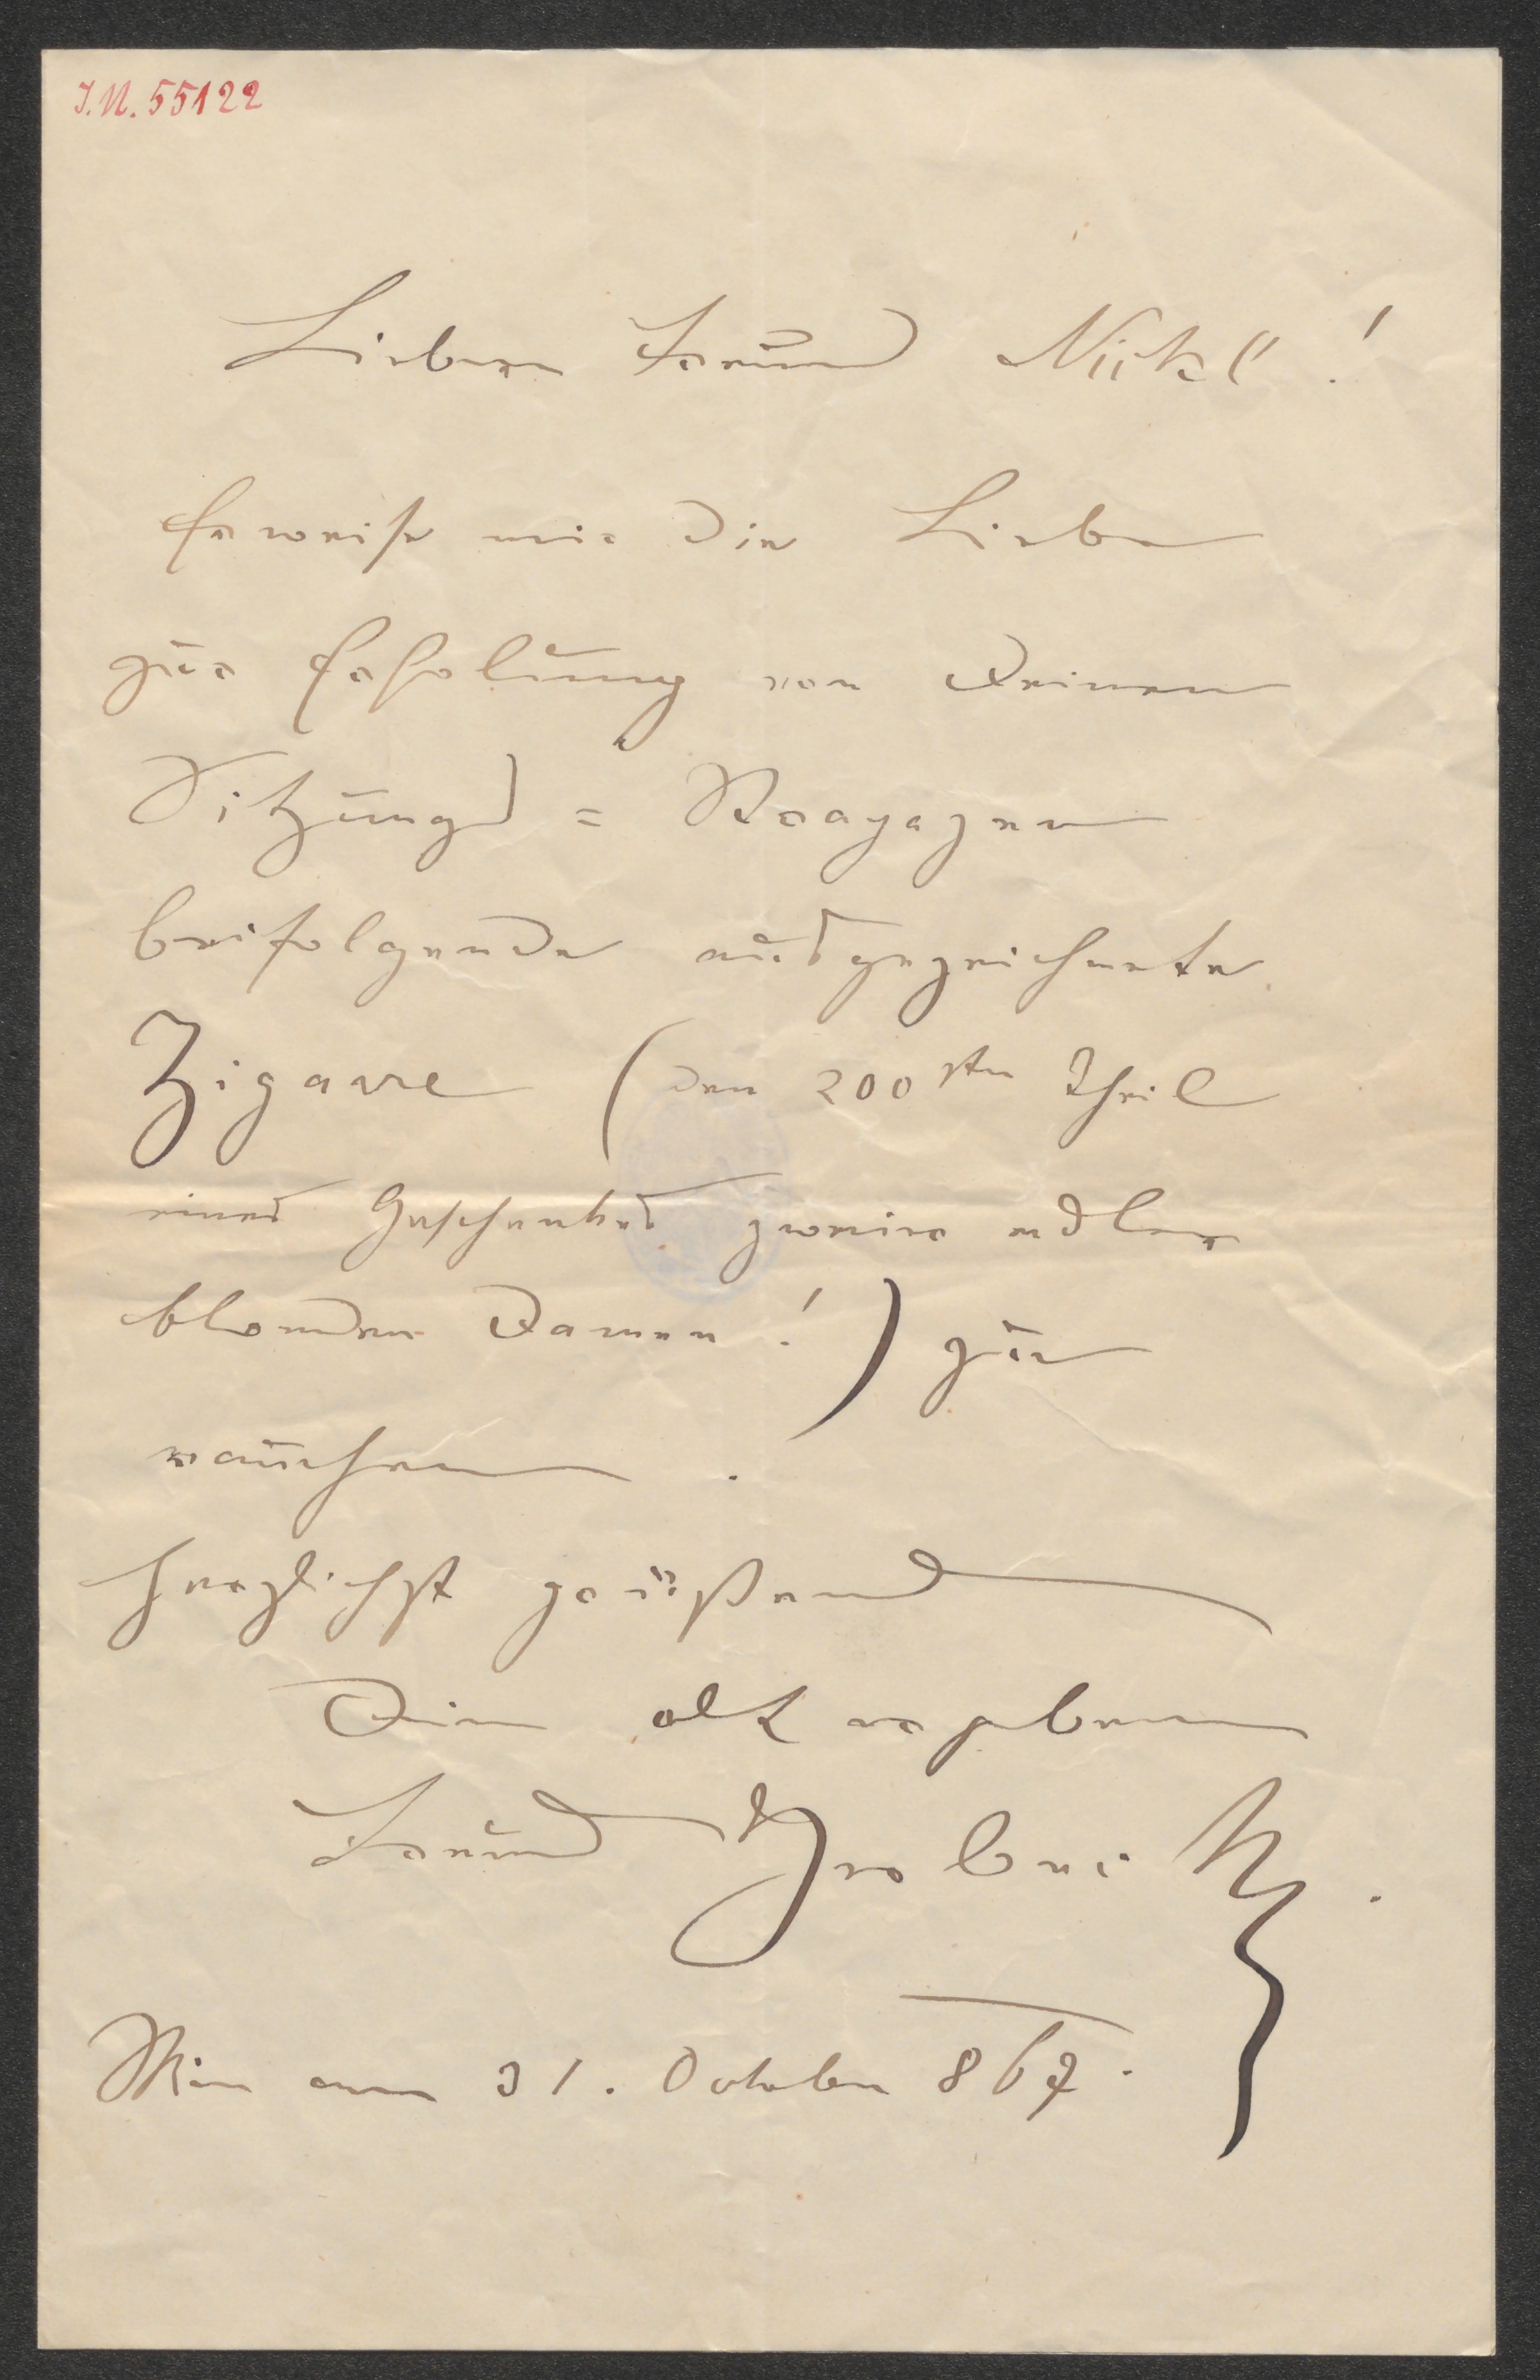 I.N. 55122
Lieber Freund Nickl!
Erweise mir die Liebe
zur Erholung von Deinen
Sitzungs=
beifolgende ausgezeichnete
Zigarre (den 200sten Theil
eines Geschenkes zweier edler
blonden Damen!) zu
rauchen.
Herzlichst grüßend
Dein alt ergebener
Freund
Wien am 31. October 867.